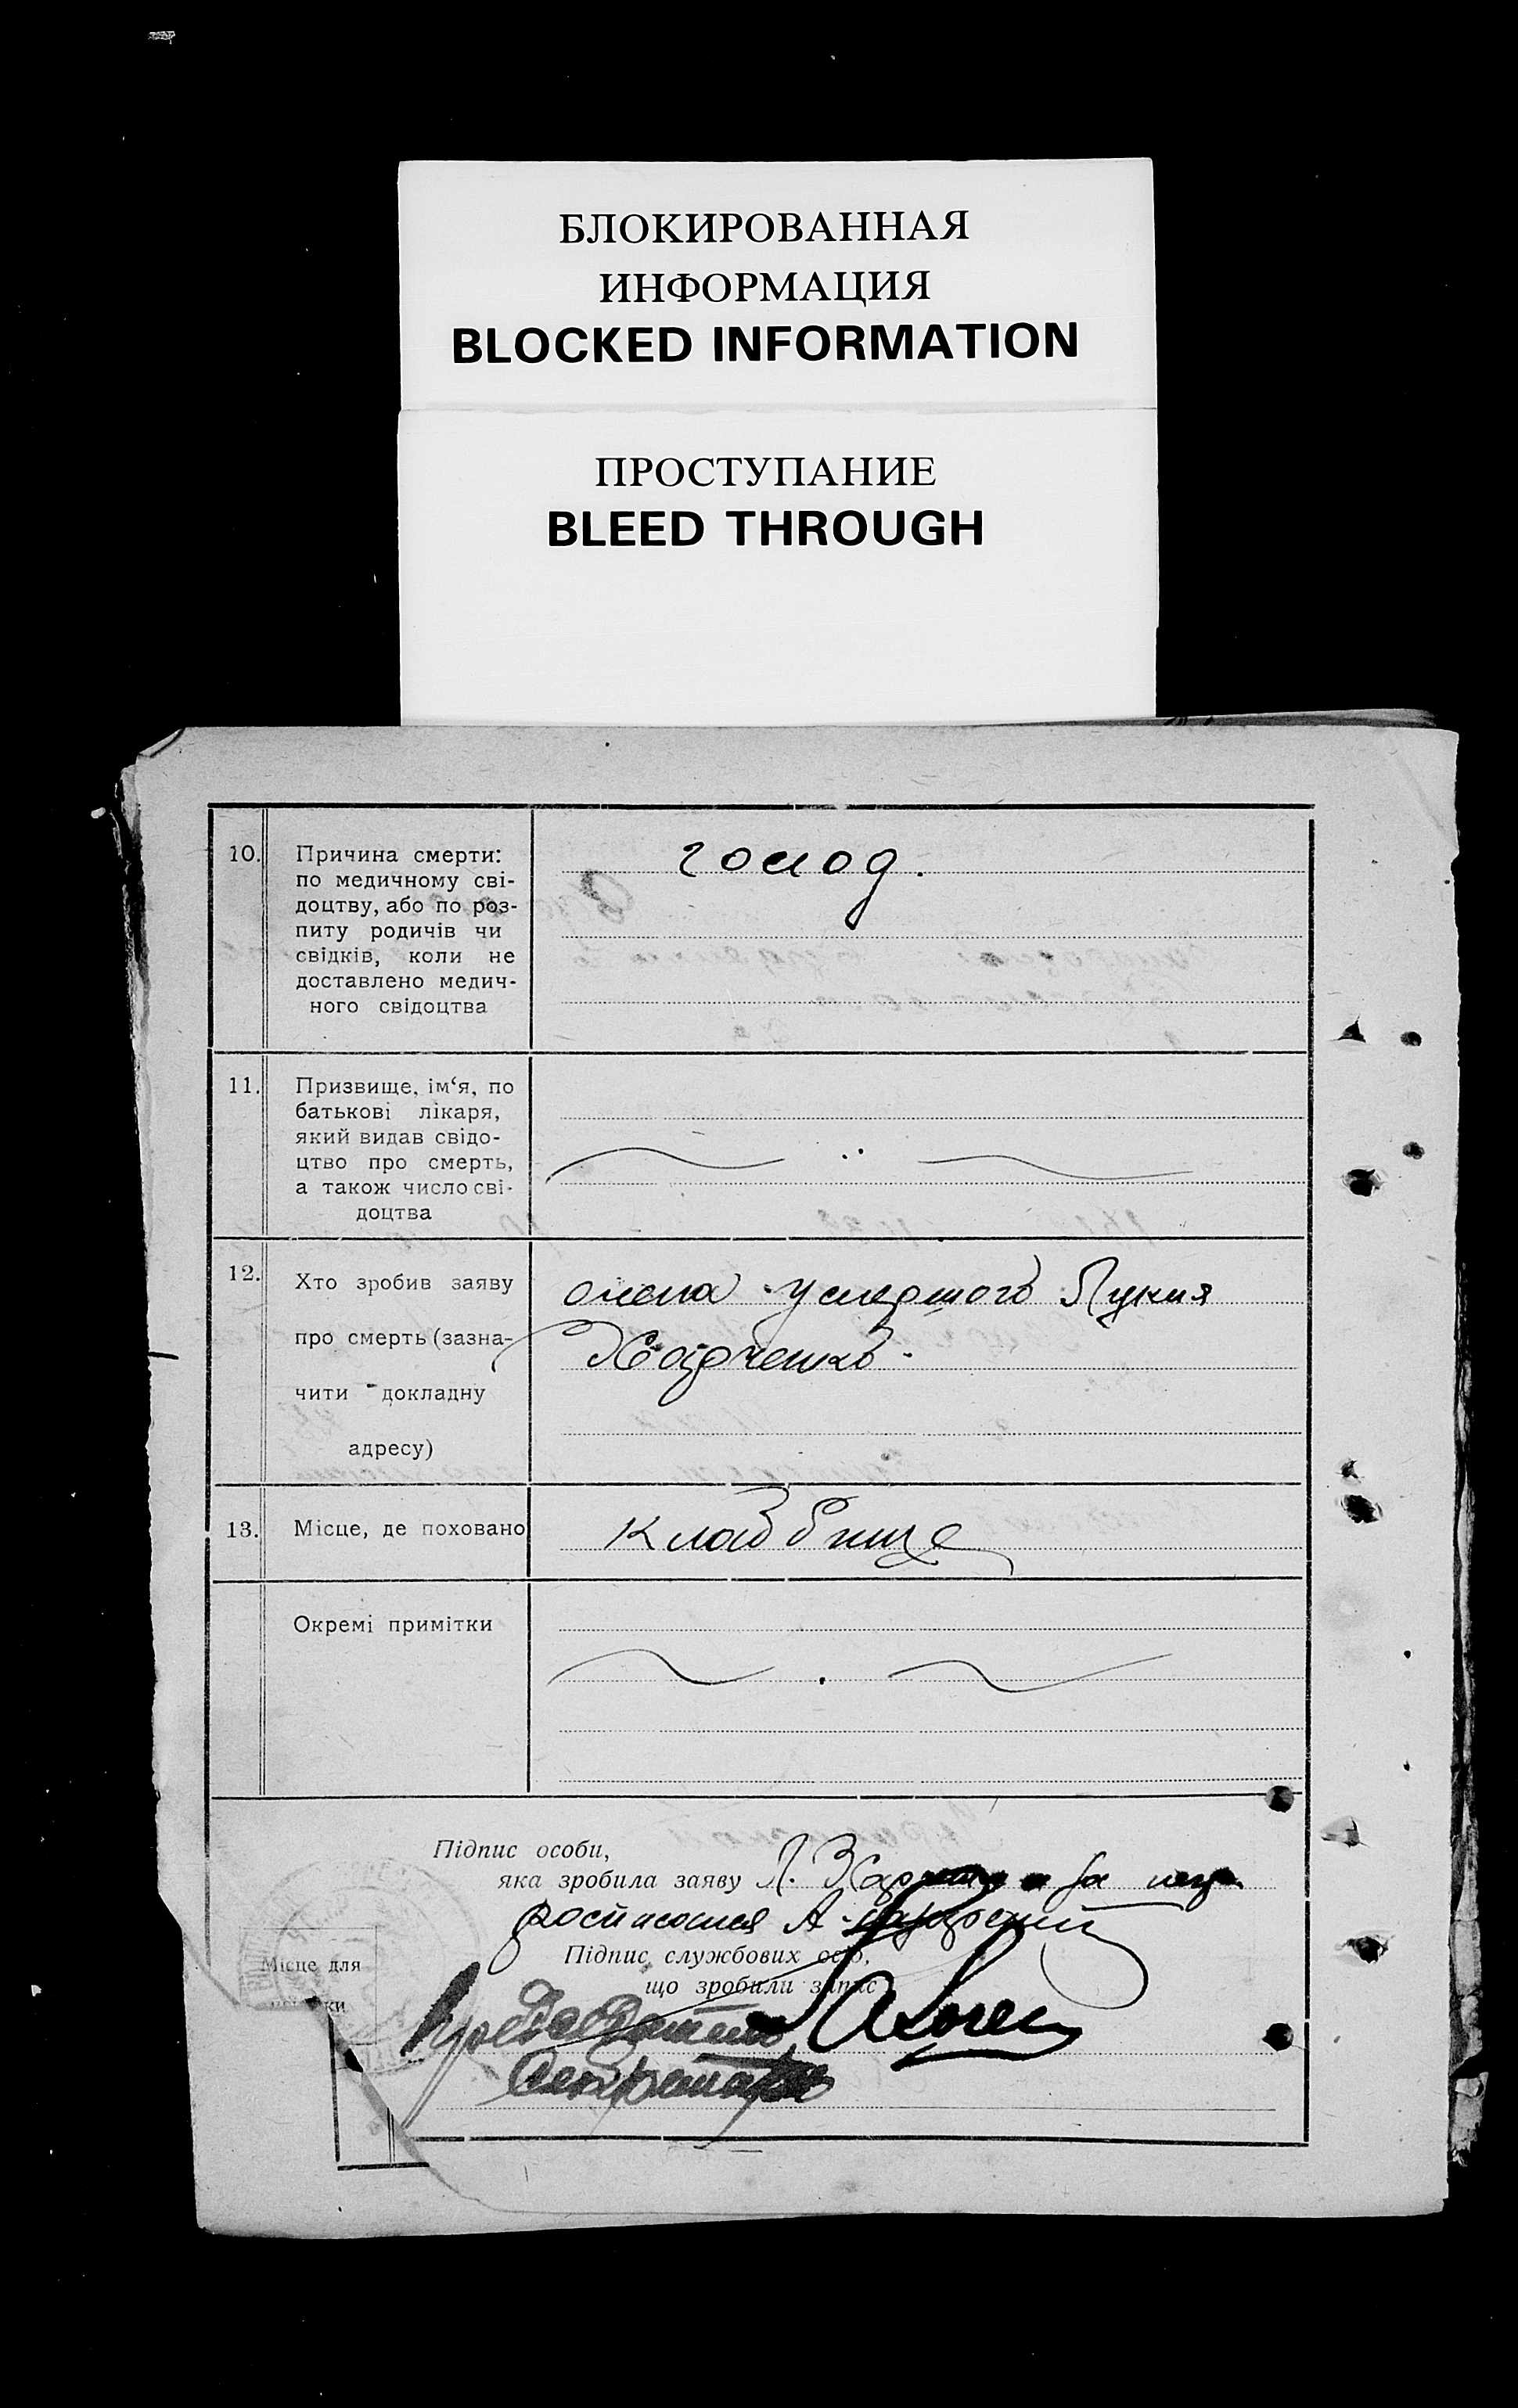 БЛОКИРОВАННАЯ
ИНФОРМАЦИЯ
BLOCKED INFORMATION
ПРОСТУПАНИЕ
BLEED THROUGH
10. Причина смерти:
по медичному сві-
доцтву, або по роз-
питу родичів чи
свідків, коли не
доставлено медич-
ного свідоцтва
голод.
11. Призвище, ім‘я, по
батькові лікаря,
який видав свідо-
цтво про смерть,
а також число сві-
доцтва
12. Хто зробив заяву
про смерть (зазна-
чити докладну
адресу)
умершого Лукия
Харченко.
13. Місце, де поховано
кладбище
Окремі примітки
Підпис особи,
яка зробила заяву Л. за
А.
Підпис службових осіб,
що зробили запис
Місце для
Секретарь